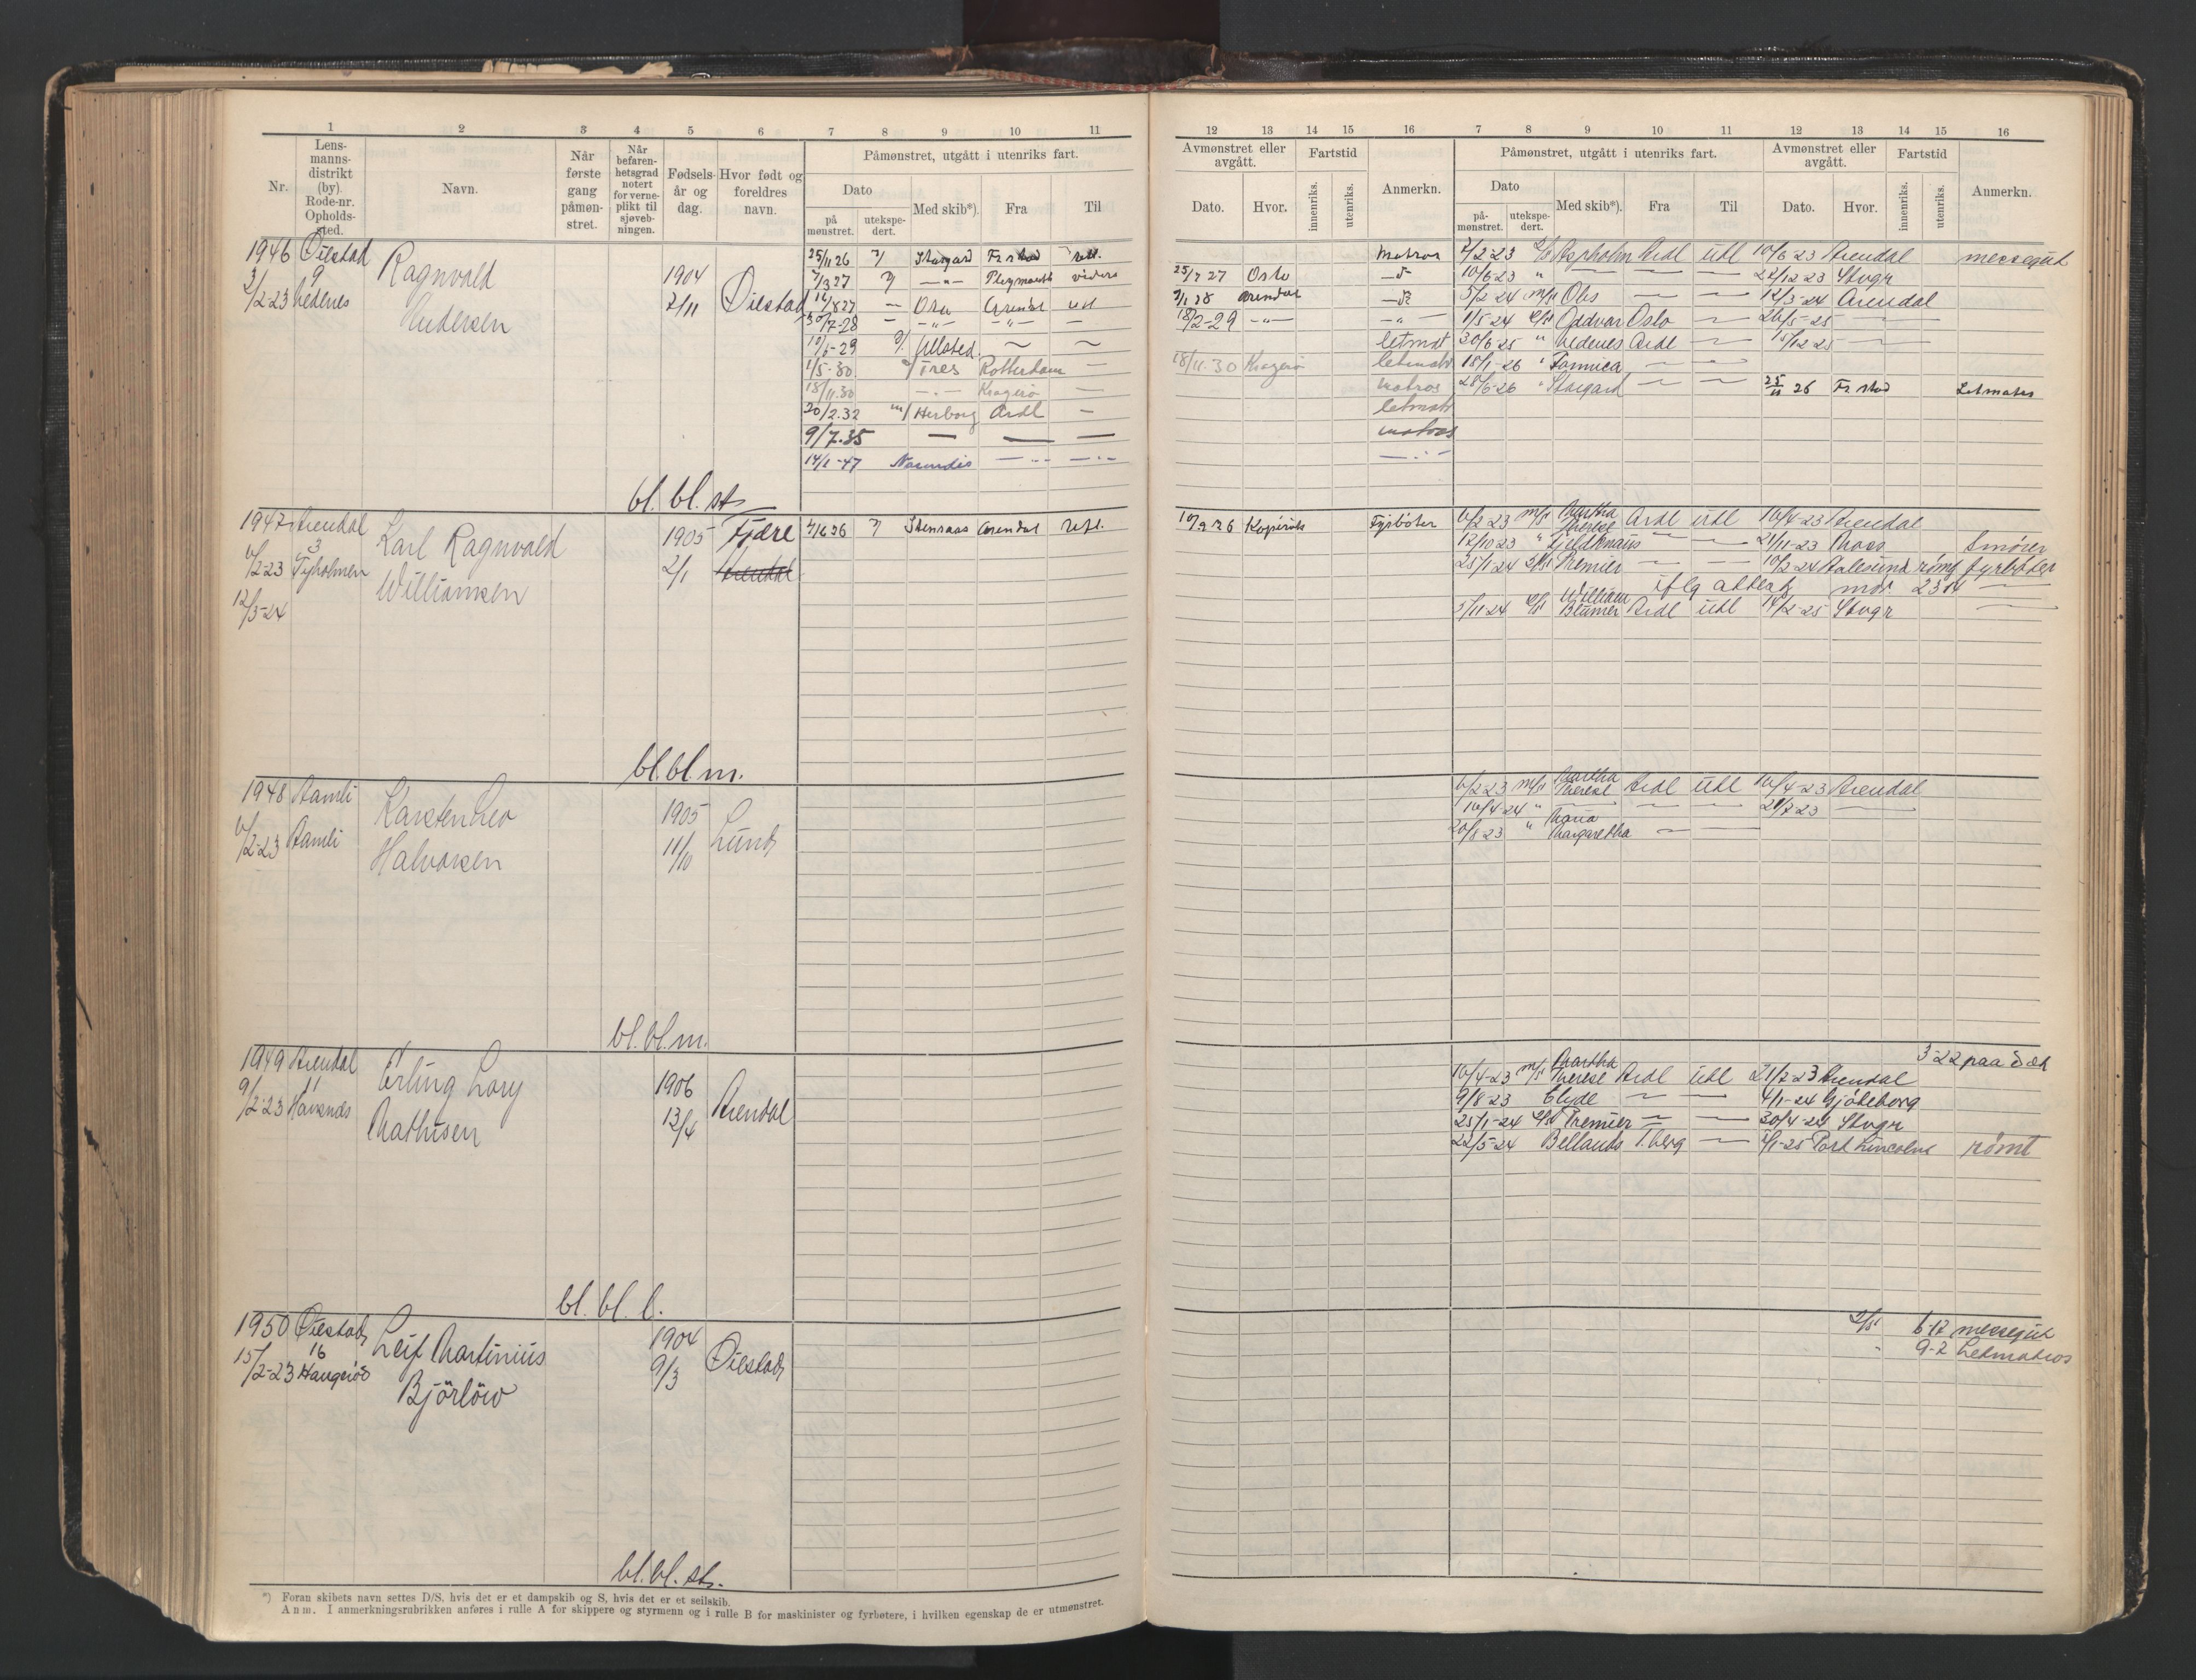 1 2 3 4 5 6 7 8 9 10 11
Nr.
Lens-
manns-
distrikt
(by).
Rode-nr.
Opholds-
sted.
Navn.
Når
første
gang
påmøn-
stret.
Når
befaren-
hetsgrad
notert
for verne-
plikt til
sjøveb-
ningen.
Fødsels-
år og
dag.
Hvor født og
foreldres
navn.
Påmønstret, utgått i utenriks fart.
Dato
på
mønstret.
utekspe-
dert.
Med skib*).
Fra
Til
1946 Øiestad
9
2/2-23 Nedenes
Ragnvald
Andersen
1904
2/11
Øiestad
25/11 26 Stargard Fr.stad Utl.
7/3 27 —"— Plymouth videre
12/8 27 — Oslo Arendal utl
30/7-28 — —"— —"— —
10/6-29 Ullsted ~ ~
1/5-30 Tres Rotterdam —
18/11.30 —.— Kragerö
20/2.32 m/ Herborg Ardl —
9/7.35 — — —
14/1-47 —..— —.—
bl. bl. st.
1947 Arendal
3
6/2-23 Tyholmen
12/3-24
Karl Ragnvald
Williamsen
1905
2/1
Fjære
Arendal
7/6 26 Stensaas Arendal Utl.
bl. bl. m.
1948 Aamli
6/2-23 Aamli
Karsten Leo
Halvorsen
1905
11/10
Lund
bl. bl. m.
1949 Arendal
11
9/2-23 Havsnes
Erling Lory
Mathisen
1906
13/4
Arendal
bl. bl. l.
1950 Øiestad
16
15/2-23 Haugerød
Leif Martinius
Björlöw
1904
9/3
Øiestad
bl. bl. st.
*) Foran skibets navn settes D/S, hvis det er et dampskib og S, hvis det er et seilskib.
Anm. I anmerkningsrubrikken anføres i rulle A for skippere og styrmenn og i rulle B for maskinister og fyrbøtere, i hvilken egenskap de er utmønstret.
12 13 14 15 16 7 8 9 10 11 12 13 14 15 16
Avmønstret eller
avgått.
Dato.
Hvor.
Fartstid
innenriks.
utenriks.
Anmerkn.
Påmønstret, utgått i utenriks fart.
Dato
på-
mønstret.
utekspe-
dert.
Med skib*).
Fra
Til
Avmønstret eller
avgått.
Dato.
Hvor.
Fartstid
innenriks.
utenriks.
Anmerkn.
Matros 2/2-23 Aspholm Ardl utl 10/6-23 Arendal messegut
25/7 27 Oslo 10/6-23 " — — 22/12 23 Stvgr
2/1 28 Arendal 5/2-24 m/s Obs — — 12/3-24 Arendal
18/2-29 —"— —"— 1/5-24 Oddvar Oslo — 26/5-25 —
letmat 30/6-25 " Nedenes Ardl — 15/12 25 —
18/11.30 Kragerö letmatr 18/1-26 " — —
matros 28/6-26 " Stargard — — 25/11 26 Fr.stad Letmatr
letmatr
matros
—.—
10/9 26 Fyrböter 6/2-23 m/s Martha Therese Ardl utl 10/4-23 Arendal
12/10 23 " Fjeldknaus — — 21/11-23 Moss Smörer
25/1-24 Premier — — 10/2-24 Aalesund römt fyrböter
iflg attest mdr 23 d —
5/11-24 William Blumer Ardl utl 14/2-25 Stvgr —
6/2-23 m/s Martha Therese Ardl utl 10/4-23 Arendal
10/4-24 " — — — 21/7-23 —
20/8-23 " Maria Margaretha — —
3-22 paa D dk
10/4-23 m/s Martha Therese Ardl utl 21/7-23 Arendal
9/8-23 Clyde — — 4/1-24 Gjöteborg
25/1-24 Premier — — 30/4-24 Stvgr
22/5-24 Bellands T.berg — 2/1-25 Port Lincolne römt
6-12 messegut
" 9-2 Letmatros